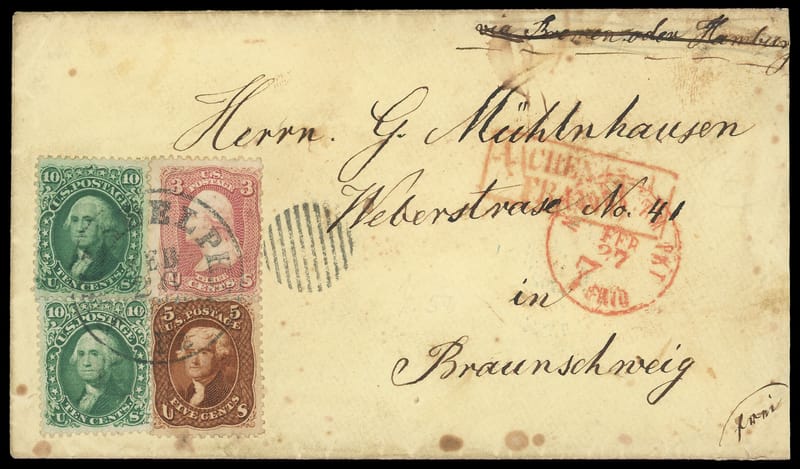 via Bremen oder Hamburg
Herrn. G. Mühlnhausen
Weberstrase No. 41
in
Braunschweig
frei
10 10
U.S. POSTAGE
TEN CENTS
U S
3 3
U.S.
POSTAGE
10 10
U.S. POSTAGE
TEN CENTS
U S
5 5
U.S. POSTAGE
FIVE CENTS
U S
AACHEN
FRANCO
FEB
27
7
PAID
PKT